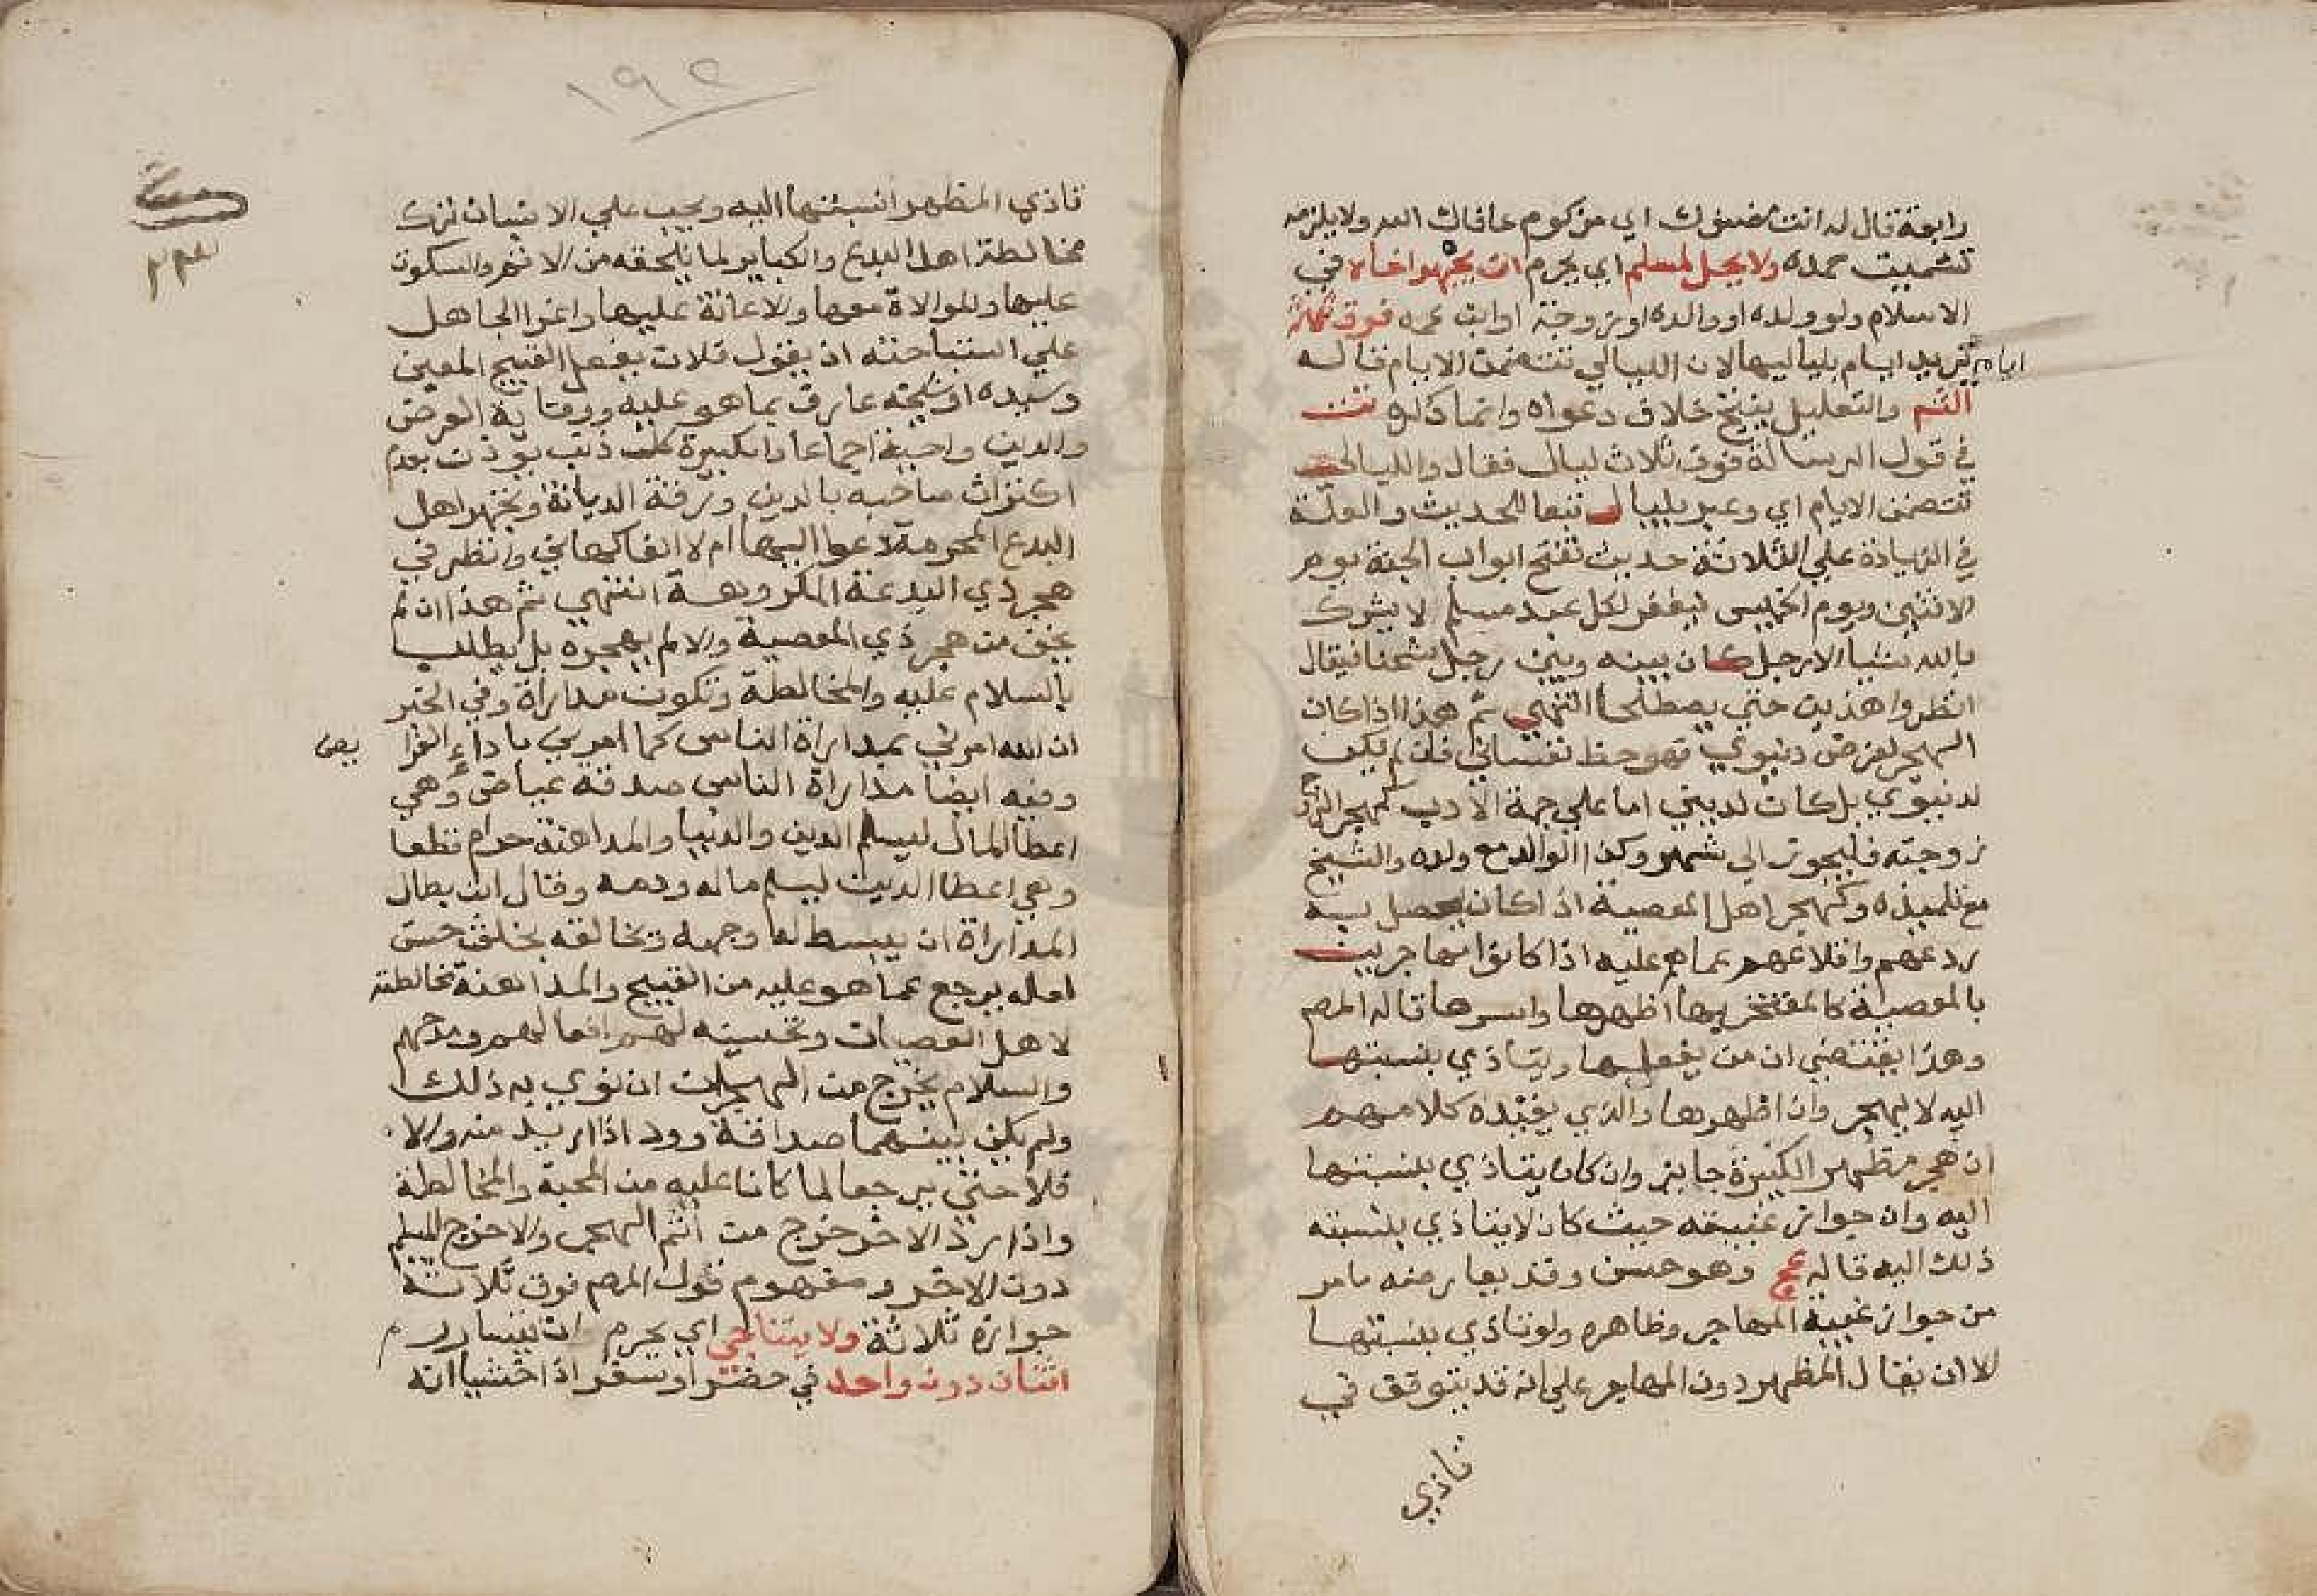 رابعة قال له انت مضنوك اي مزكوم عافاك الله ولا يلزمه
تشميت حمده ولا يحل لمسلم اي يحرم ان يهجر اخاه في
الاسلام ولو ولده او والده او زوجته او ابن عمه فوق ثلاثة
ايام يريد ايام بلياليها لان الليالي تتضمن الايام قاله
والتعليل ينتج خلاف دعواه وانما ذكره تت
في قول الرسالة فوق ثلاث ليال فقال والليالي
تتضمن الايام اي وعبر بليال تبعا للحديث والعلة
في الزيادة علي الثلاثة حديث تفتح ابواب الجنة يوم
الاثنين ويوم الخميس فيغفر لكل عبد مسلم لا يشرك
بالله شيا الا رجل كان بينه وبين رجل شحنا فيقال
انظروا هذين حتي يصطلحا انتهي ثم هذا اذا كان
الهجر لغرض دنيوي فهو حظ نفساني فان لم يكن
لدنيوي بل كان لديني اما علي جهة الادب كهجر الزوج
زوجته فليجوز الي شهر وكذا الوالد مع ولده والشيخ
مع تلميذه وكهجر اهل المعصية اذا كان يحصل به
ردعهم واقلاعهم عما هم عليه اذا كانوا مهاجرين
بالمعصية كالمفتخر بها اظهرها واسرها قاله المص
وهذا يقتضي ان من يفعلها ويتاذي بنسبتها
اليه لا يهجر وان اظهرها والذي يفيده كلامهم
ان هجر مظهر الكبيرة جايز وان كان يتاذي بنسبتها
اليه وان جواز غيبته حيث كان لا يتاذي بنسبته
ذلك اليه قاله عج وهو حسن وقد يعارضه ما مر
من جواز غيبة المهاجر وظاهره ولو تاذي بنسبتها
الا ان يقال المظهر دون المهاجر علي انه قد يتوقف في
تاذي
١٩٢
تاذي المظهر بنسبتها اليه ويجب علي الانسان ترك
مخالطة اهل البدع والكباير لما يلحقه من الاثم والسكوت
عليها والموالاة معها والاعانة عليها واغرا الجاهل
علي استباحته اذ يقول فلان يفعل القبيح المعين
وسيده او شيخه عارف بما هو عليه ووقاية العرض
والدين واجبة اجماعا والكبيرة كل ذنب يوذن بعدم
اكتراث صاحبه بالدين ورقة الديانة ويهجر اهل
البدع المحرمة دعوا اليها ام لا انظر في
هجر ذي البدعة المكروهة انتهي ثم هذا ان لم
يخف من هجر ذي المعصية والا لم يهجره بل يطلب
بالسلام عليه والمخالطة وتكون مداراة وفي الخبر
ان الله امرني بمداراة الناس كما امرني باداء الفرا
يض
وفيه ايضا مداراة الناس صدقة عياض وهي
اعطا المال ليسلم الدين والدنيا والمداهنة حرام قطعا
وهي اعطا الدين ليسلم ماله ودمه وقال ابن بطال
المداراة ان يبسط له وجهه ويخالقه بخلق حسن
لعله يرجع عما هو عليه من القبيح والمداهنة مخالطته
لاهل العصيان وتحسينه لهم افعالهم ومدحهم
والسلام يخرج من الهجران ان نوي به ذلك
ولم يكن بينهما صداقة وود اذا اريد منه والا
فلا حتي يرجعا لما كانا عليه من المحبة والمخالطة
واذا رد الاخر خرج من اثم الهجر والا خرج المسلم
دون الاخر ومفهوم قول المص فوق ثلاثة
جوازه ثلاثة ولا يتناجي اي يحرم ان يتسارر
اثنان دون واحد في حضر او سفر اذا خشيا انه